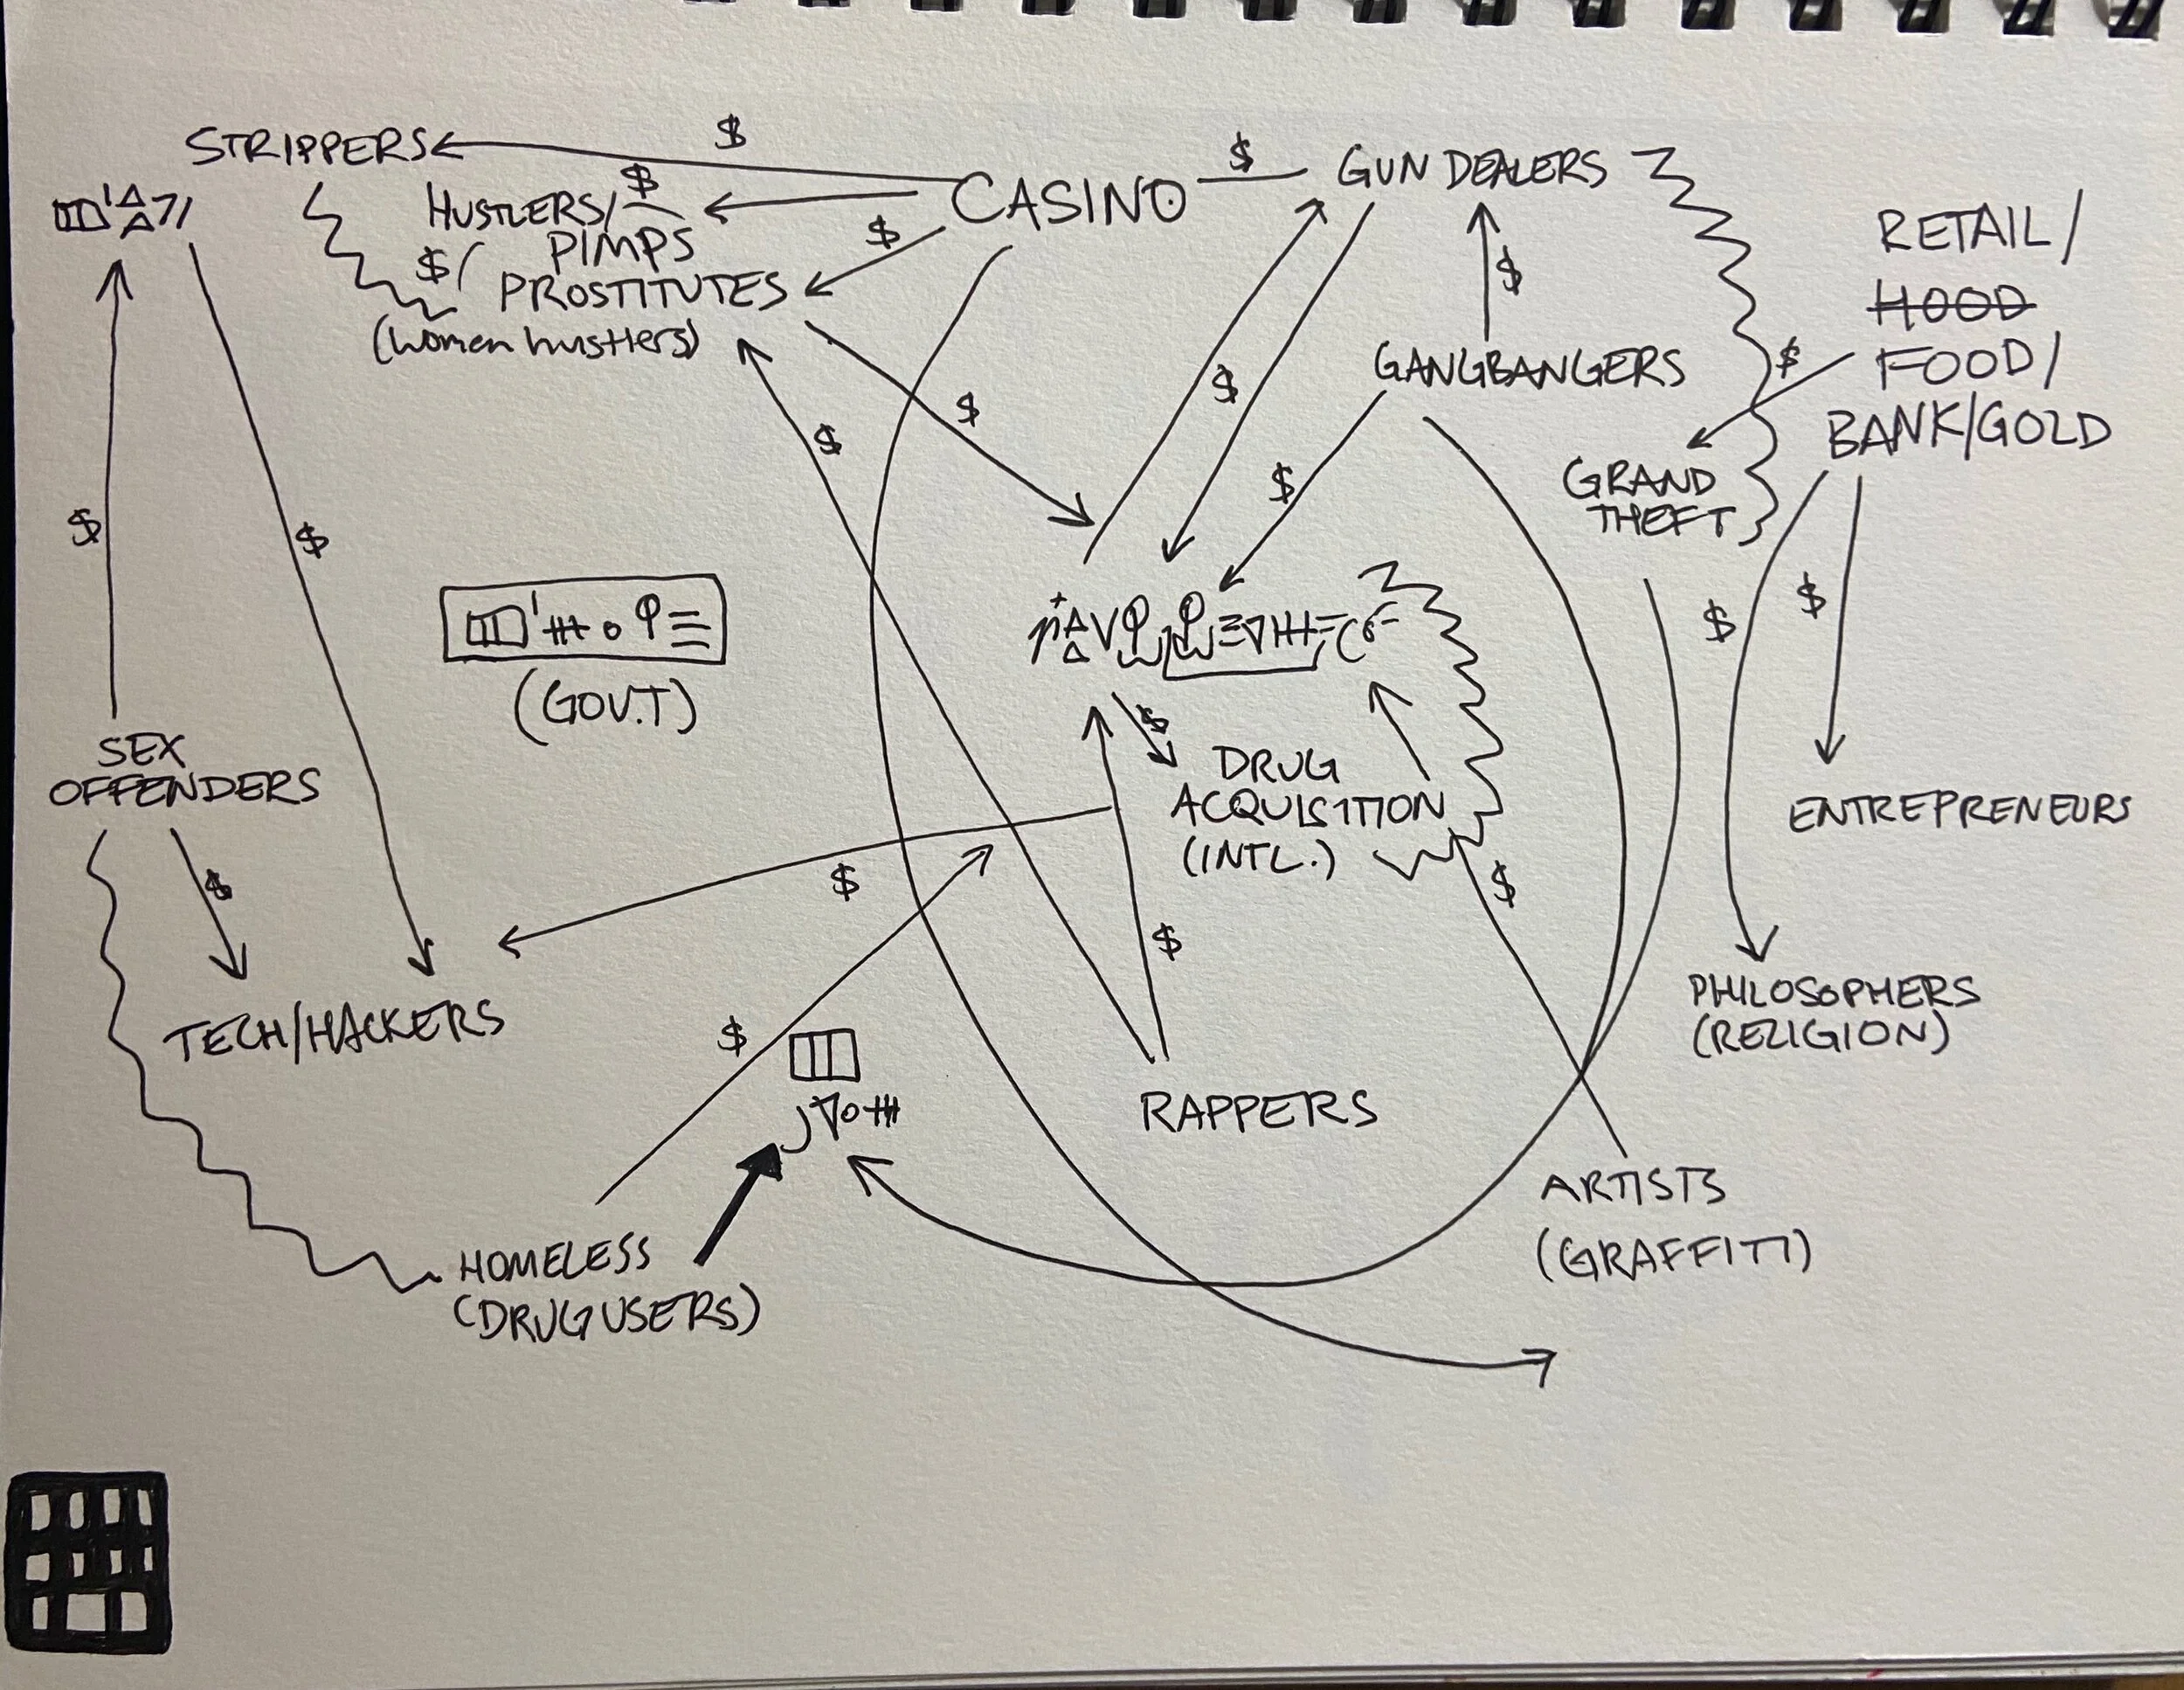 STRIPPERS
$
CASINO
$
GUN DEALERS
HUSTLERS/
$
PIMPS
$
$
PROSTITUTES
(women hustlers)
$
$
$
$
GANGBANGERS
$
RETAIL/
HOOD
FOOD/
BANK/GOLD
$
GRAND
THEFT
$
$
$
$
(GOV.T)
SEX
OFFENDERS
$
$
DRUG
ACQUISITION
(INTL.)
ENTREPRENEURS
$
$
$
TECH/HACKERS
$
PHILOSOPHERS
(RELIGION)
RAPPERS
ARTISTS
(GRAFFITI)
HOMELESS
(DRUG USERS)